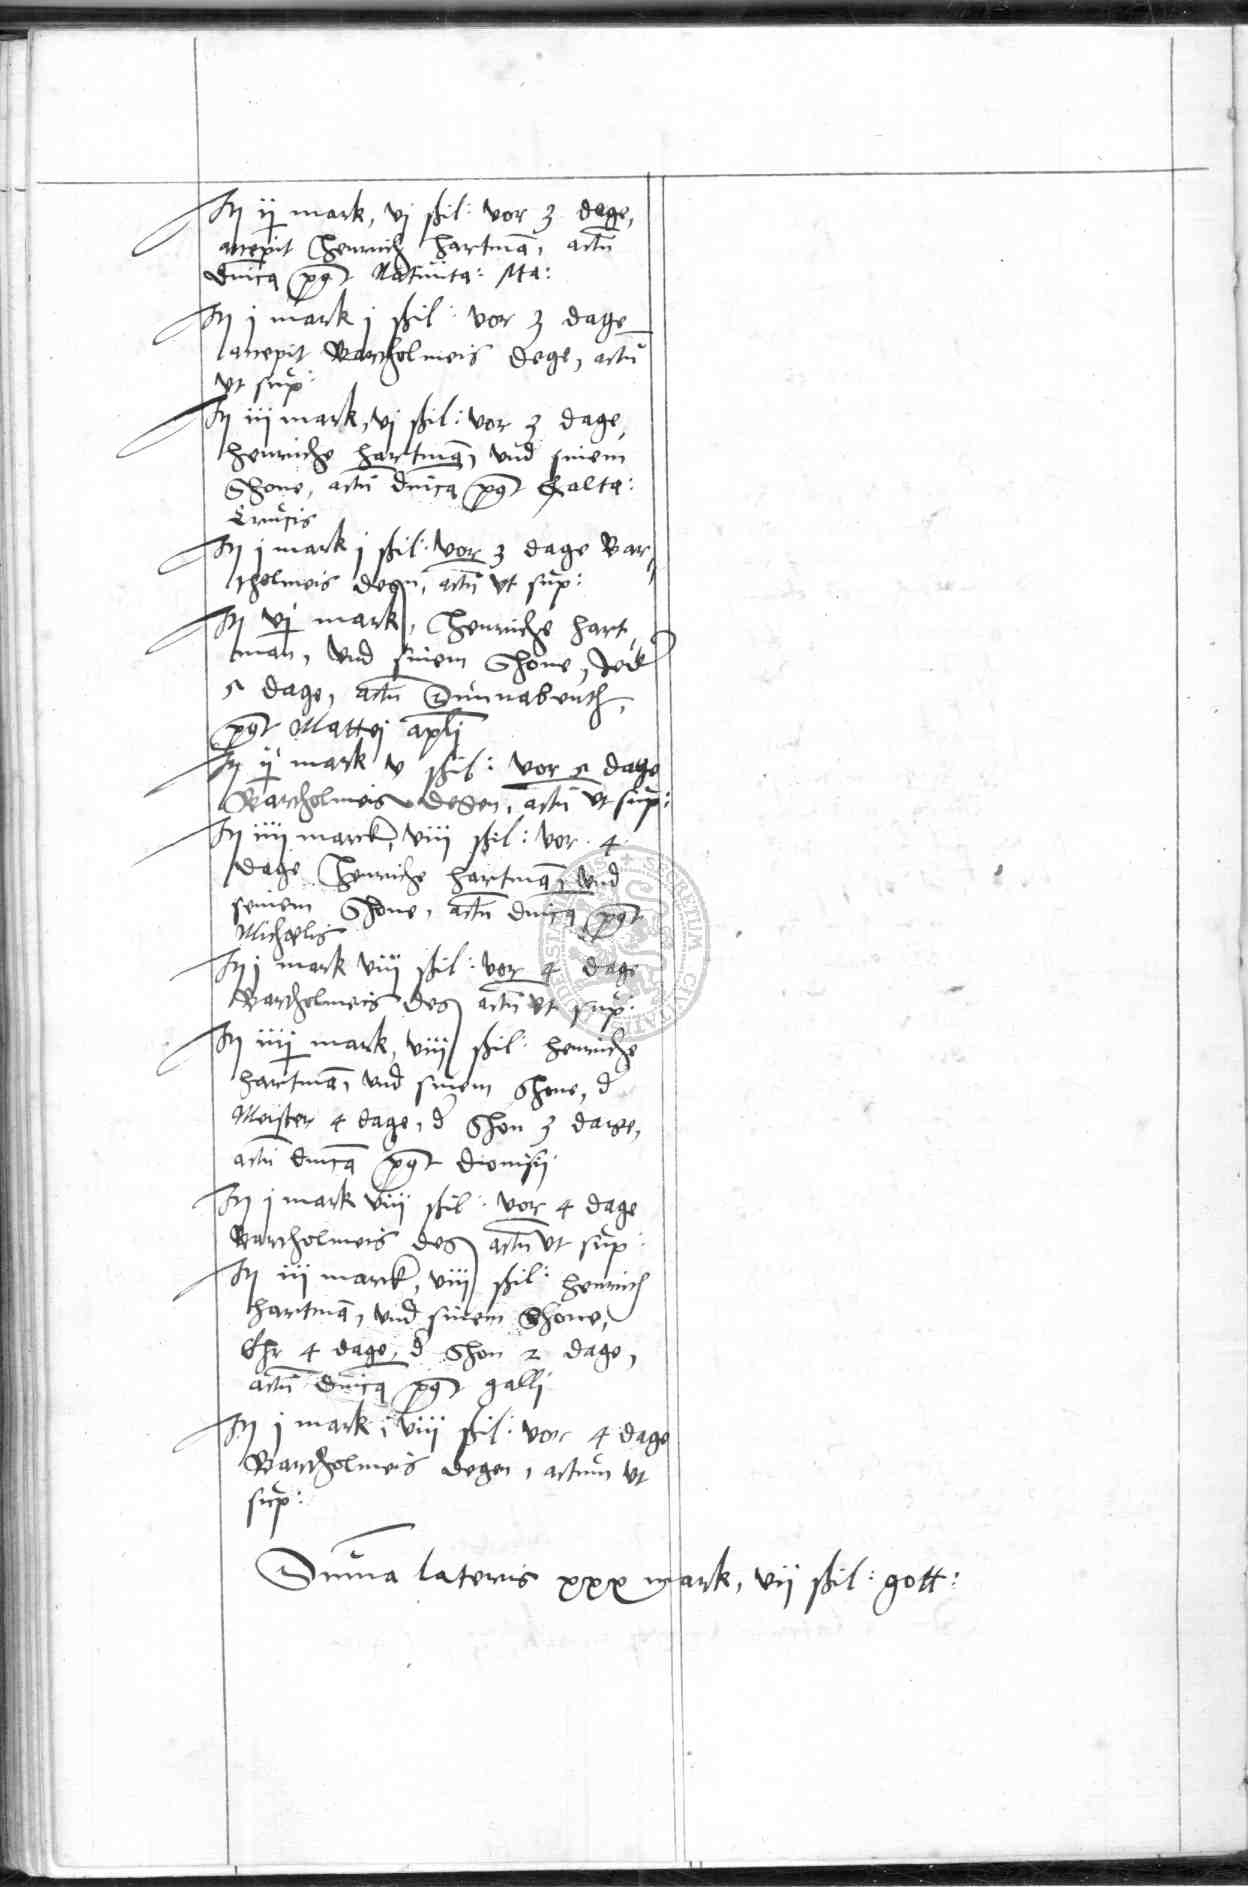 It ij mark, vj ßil: vor 3 dage,
accepit Henrich hartmā, actū
dnica pꝰt Natiuita: Ma:
It j mark j ßil: vor 3 dage
accepit Bartholmeis dege, actū
vt sup:
It iij mark, vj ßil: vor 3 dage,
henriche hartmā, vnd sinem
Shone, actū dnica pꝰt Exalta:
Crucis
It j mark j ßil: vor 3 dage Bar
tholmeis degn, actū vt sup:
It vj mark, Henriche hart
man, vnd sinem Shone, Jeder
5 dage, actū Sunnabenth,
pꝰt Mattej apli
It ij mark v ßil: vor 5 dage
Bartholmeis degen, actū vt sup:
It iiij marck, viij ßil: vor 4
dage Henriche hartmā, vnd
seinem Shone, actū dnica pꝰt
Michaelis
It j mark viij ßil: vor 4 dage
Bartholmeis deg actū vt sup:
It iiij mark, viij ßil: henriche
hartmā, vnd sinem Shone, d
Meister 4 dage, d Shon 3 darge,
actū dnica pꝰt dionisij
It j mark viij ßil: vor 4 dage
Bartholmeis deg actū vt sup:
It iij marck, viij ßil: henrich
hartmā, vnd sinem Shone,
Ehr 4 dage, d Shon 2 dage,
actū dnica pꝰt galli
It j mark; viij ßil: vor 4 dage
Bartholmeis degen, actum vt
sup:
Suma lateris xxx mark, vij ßil: gott:
SECRETUM CIVITATIS